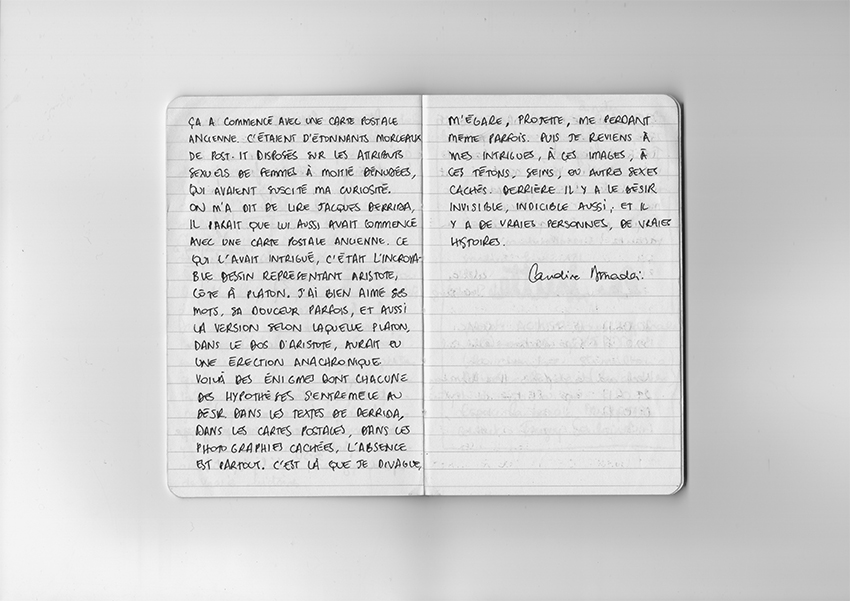 ÇA A COMMENCÉ AVEC UNE CARTE POSTALE
ANCIENNE. C'ÉTAIENT D'ÉTONNANTS MORCEAUX
DE POST-IT DISPOSÉS SUR LES ATTRIBUTS
SEXUELS DE FEMMES À MOITIÉ DÉNUDÉES,
QUI AVAIENT SUSCITÉ MA CURIOSITÉ.
ON M'A DIT DE LIRE JACQUES DERRIDA,
IL PARAIT QUE LUI AUSSI AVAIT COMMENCÉ
AVEC UNE CARTE POSTALE ANCIENNE. CE
QUI L'AVAIT INTRIGUÉ, C'ÉTAIT L'INCROYA-
BLE DESSIN REPRÉSENTANT ARISTOTE,
CÔTE À PLATON. J'AI BIEN AIMÉ SES
MOTS, SA DOUCEUR PARFOIS, ET AUSSI
LA VERSION SELON LAQUELLE PLATON,
DANS LE DOS D'ARISTOTE, AURAIT EU
UNE ÉRECTION ANACHRONIQUE
VOILÀ DES ÉNIGMES DONT CHACUNE
DES HYPOTHÈSES S'ENTREMÊLE AU
DÉSIR DANS LES TEXTES DE DERRIDA,
DANS LES CARTES POSTALES, DANS LES
PHOTOGRAPHIES CACHÉES, L'ABSENCE
EST PARTOUT. C'EST LÀ QUE JE DIVAGUE,
M'ÉGARE, PROJETTE, ME PERDANT
MÊME PARFOIS. PUIS JE REVIENS À
MES INTRIGUES, À CES IMAGES, À
CES TÉTONS, SEINS, OU AUTRES SEXES
CACHÉS. DERRIÈRE IL Y A LE DÉSIR
INVISIBLE, INDICIBLE AUSSI, ET IL
Y A DE VRAIES PERSONNES, DE VRAIES
HISTOIRES.